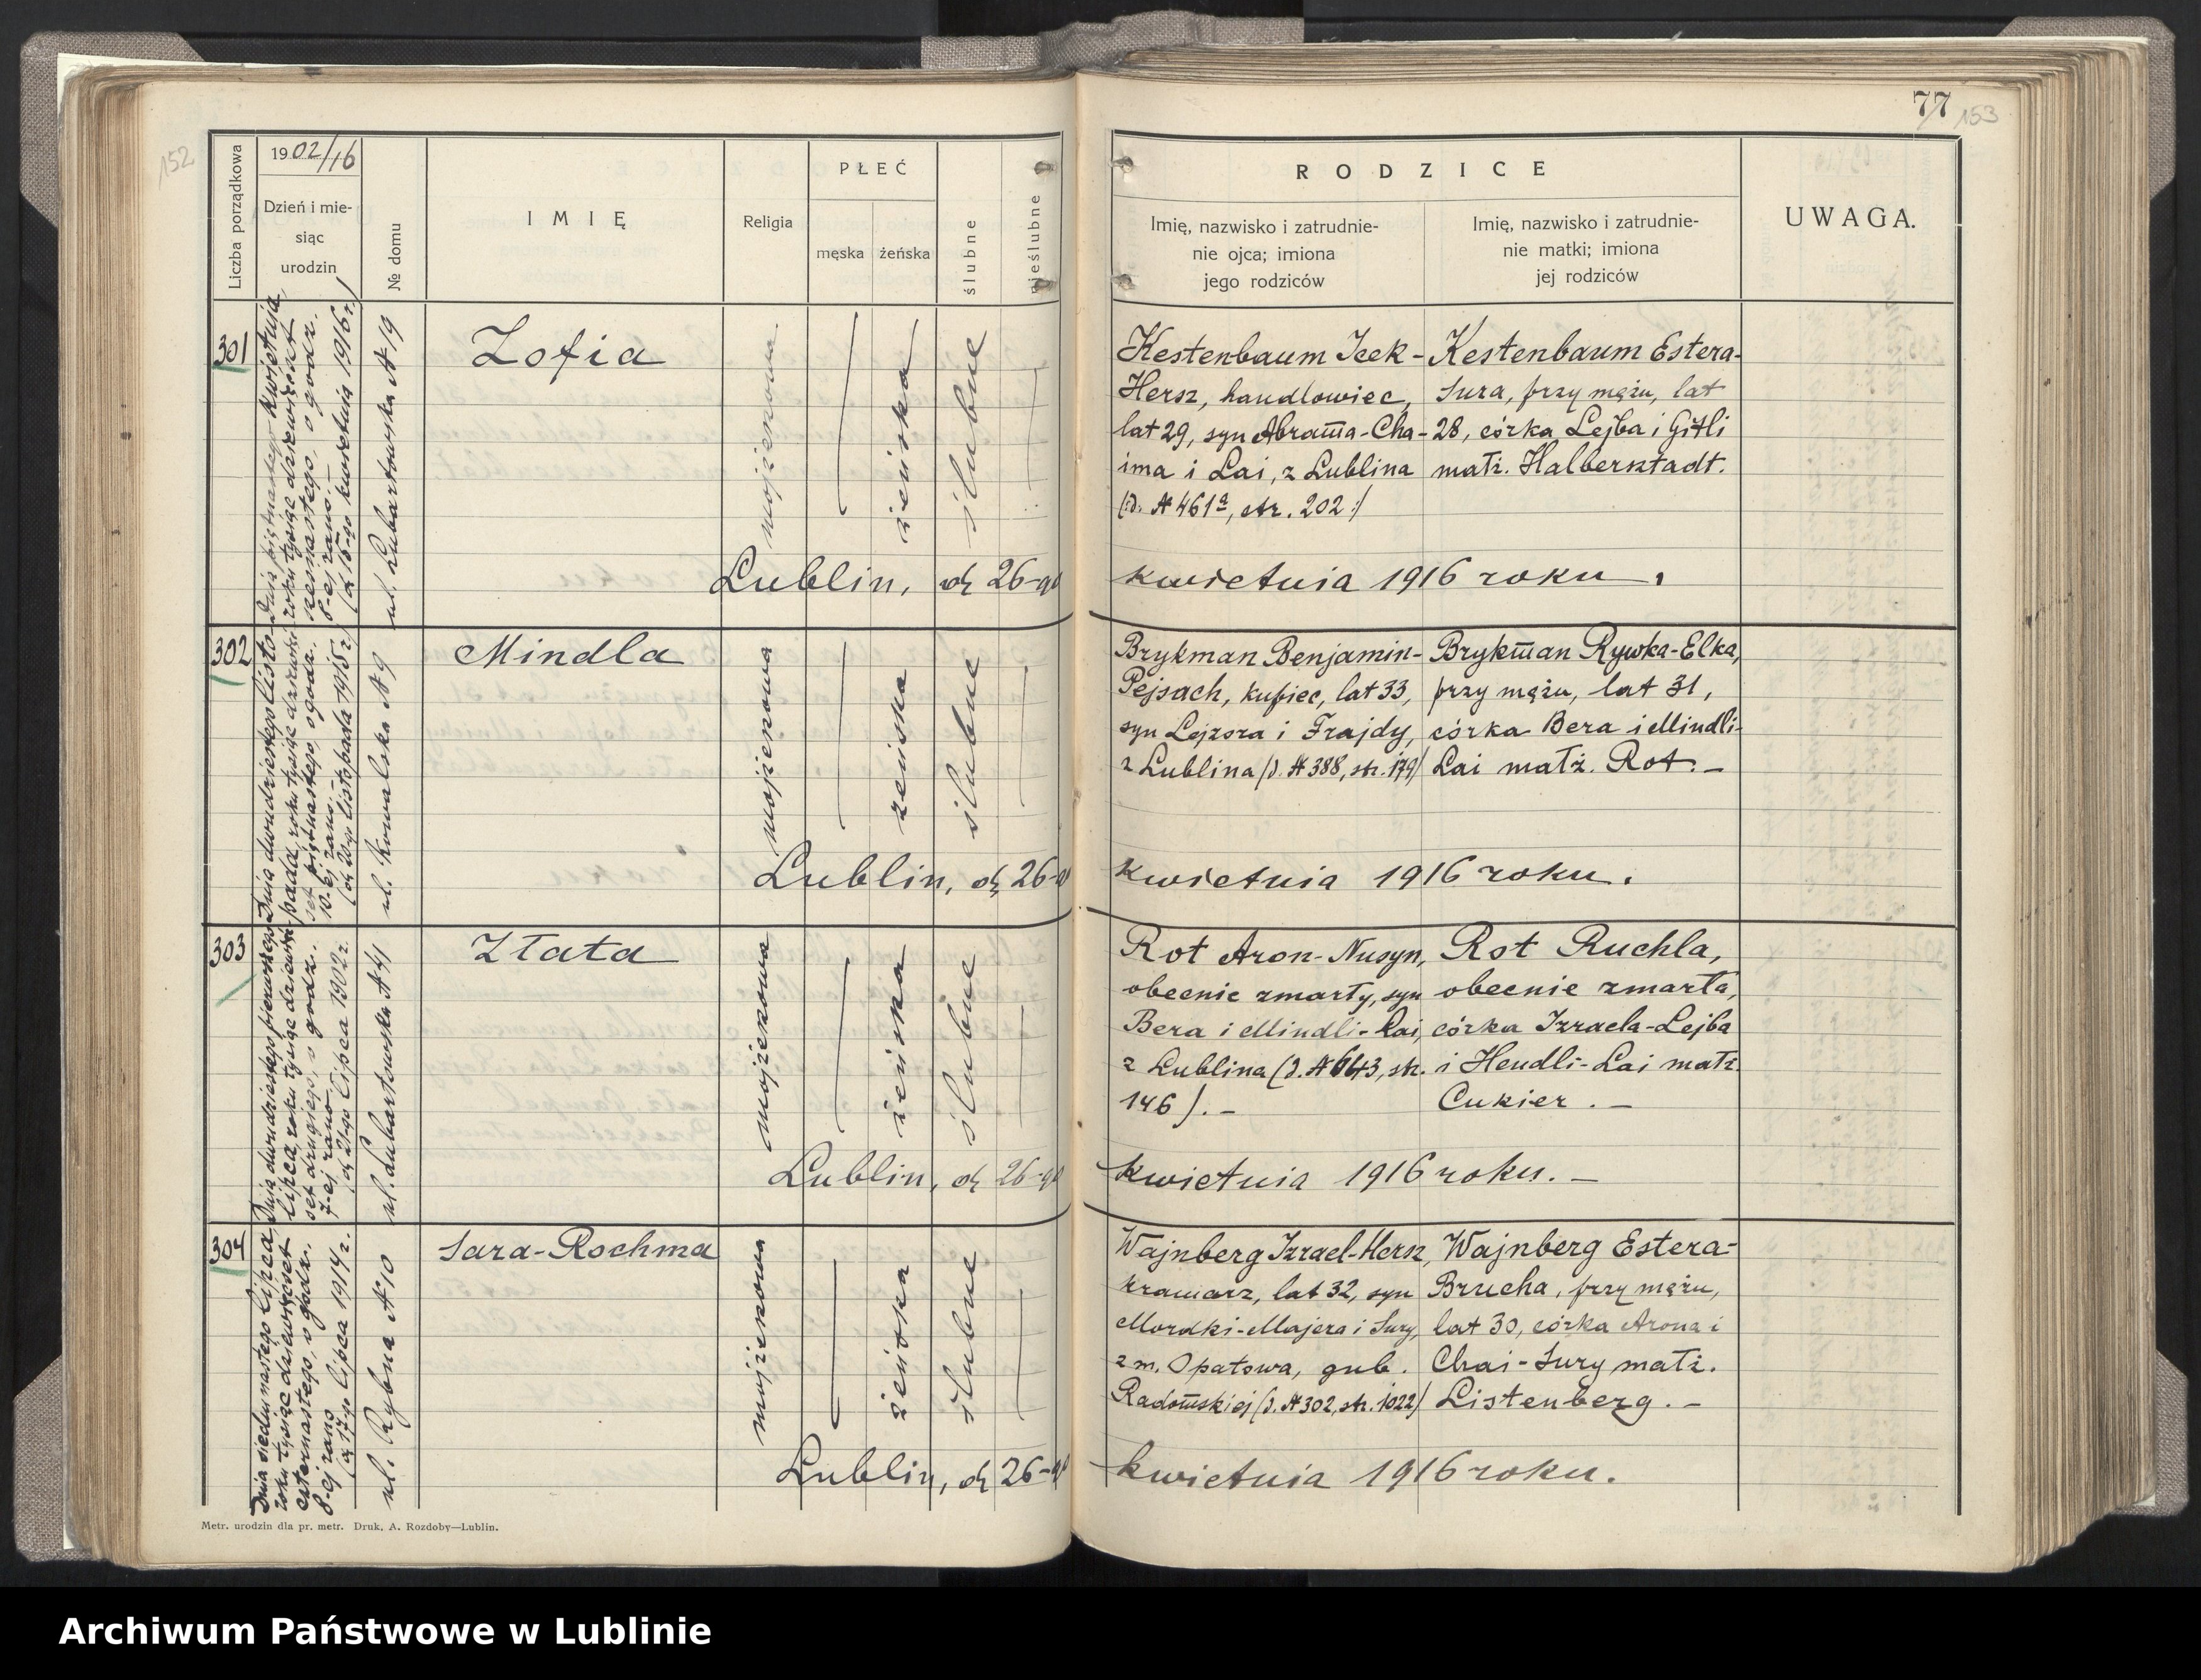 152
77
153
Liczba porządkowa
1902/16
Dzień i mie-
siąc
urodzin
№ domu
IMIĘ
Religia
PŁEĆ
męska
żeńska
ślubne
nieślubne
RODZICE
Imię, nazwisko i zatrudnie-
nie ojca; imiona
jego rodziców
Imię, nazwisko i zatrudnie-
nie matki; imiona
jej rodziców
UWAGA.
301
Dnia piętnastego kwietnia
roku tysiąc dziewięćset
szesnastego, o godz.
8-ej rano.
(d. 15-go kwietnia 1916 r.)
ul. Lubartowska № 19
Zofia
mojżeszowa
żeńska
ślubne
Kestenbaum Icek-
Hersz, handlowiec,
lat 29, syn Abrama-Cha-
ima i Lai, z Lublina
(d. № 461a, str. 202)
Kestenbaum Estera-
Sura, przy mężu, lat
28, córka Lejba i Gitli
małż. Halbersztadt.
Lublin, d. 26-go kwietnia 1916 roku.
302
Dnia dwudziestego listo-
pada, roku tysiąc dziewięć-
set piętnastego, o godz.
10-ej rano.
(d. 20-go listopada 1915 r.)
ul. Kowalska № 9
Mindla
mojżeszowa
żeńska
ślubne
Brykman Benjamin-
Pejsach, kupiec, lat 33,
syn Lejzora i Frajdy,
z Lublina (d. № 388, str. 179)
Brykman Rywka-Elka,
przy mężu, lat 31,
córka Bera i Mindli-
Lai małż. Rot. —
Lublin, d. 26-go kwietnia 1916 roku.
303
Dnia dwudziestego pierwszego
lipca, roku tysiąc dziewięć-
set drugiego, o godz.
7-ej rano.
(d. 21-go lipca 1902 r.
ul. Lubartowska № 41
Złata
mojżeszowa
żeńska
ślubne
Rot Aron-Nusyn,
obecnie zmarły, syn
Bera i Mindli-Lai,
z Lublina (d. № 643, str.
146). —
Rot Ruchla,
obecnie zmarła,
córka Izraela-Lejba
i Hendli-Lai małż.
Cukier. —
Lublin, d. 26-go kwietnia 1916 roku. —
304
Dnia siedemnastego lipca,
roku tysiąc dziewięćset
czternastego, o godz.
8-ej rano
(d. 17-go lipca 1914 r.
ul. Rybna № 10
Sara-Rochma
mojżeszowa
żeńska
ślubne
Wajnberg Izrael-Hersz,
kramarz, lat 32, syn
Mordki-Majera i Sury,
z m. Opatowa, gub.
Radomskiej (d. № 302, str. 1022)
Wajnberg Estera-
Brucha, przy mężu,
lat 30, córka Arona i
Chai-Sury małż.
Listenberg. —
Lublin, d. 26-go kwietnia 1916 roku.
Metr. urodzin dla pr. metr. Druk. A. Rozdoby—Lublin.
Archiwum Państwowe w Lublinie